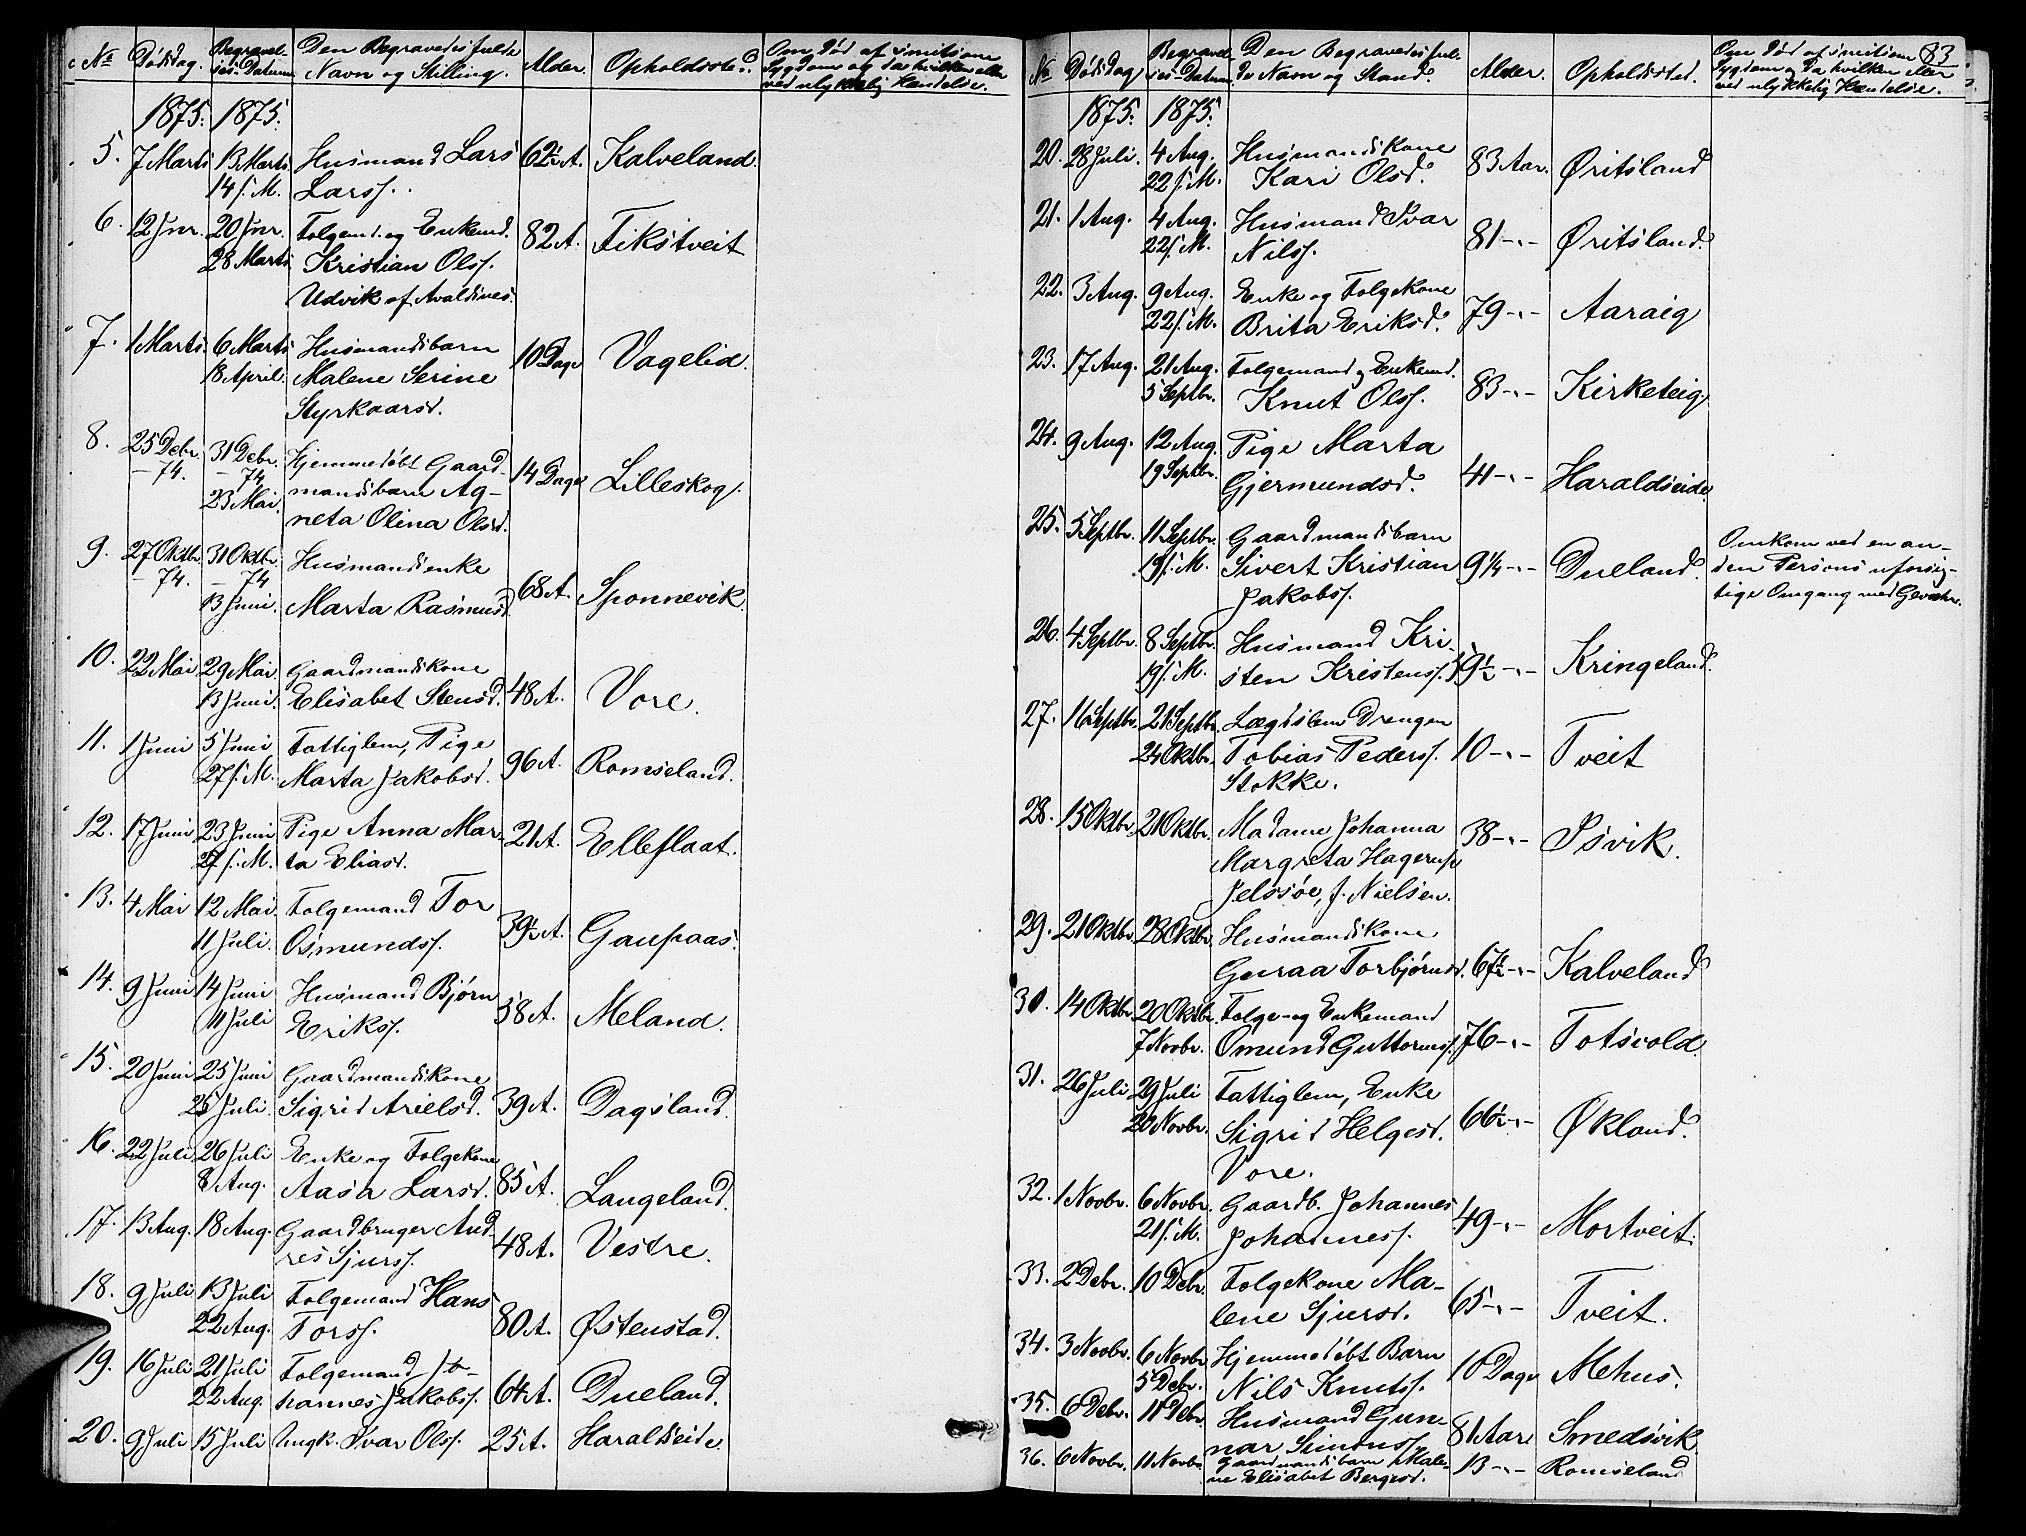 No Dødsdag. Begravel-ses-Datum Den Begravedes fulde Navn og Stilling. Alder. Opholdssted. Om Død af smitsom Sygdom og da hvilken eller ved ulykkelig Hændelse.
1875. 1875.
5. 7 Marts 13 Marts Husmand Lars 62½ A. Kalveland.
14 s. M. Larss.
6. 12 Jnr. 20 Jnr. Folgemd. og Enkemd. 82 A. Fikstveit
28 Marts Kristian Olss.
Udvik af Avaldsnes.
7. 1 Marts 6 Marts Husmandsbarn 10 Dage Vagelid.
18 April. Malene Serine
Styrkaarsd.
8. 25 Debr. 31 Debr. Hjemmedøbt Gaard- 14 Dage Lilleskog.
- 74. - 74 mandsbarn Ag-
23 Mai. neta Olina Olsd.
9. 27 Oktbr. 31 Oktbr. Husmandsenke 68 A. Sponnevik.
- 74. - 74
13 Juni. Marta Rasmusd.
10. 22 Mai 29 Mai Gaardmandskone
13 Juni. Elisabet Stensd. 48 A. Vore.
11. 1 Juni 5 Juni Fattiglem, Pige 96 A. Romseland.
27 s. M. Marta Jakobsd.
12. 17 Juni 23 Juni Pige Anna Mar- 21 A. Elleflaat.
27 s. M. ta Eliasd.
13. 4 Mai 12 Mai. Folgemand Tor 39½ A. Gaupaas.
11 Juli. Osmundss.
14. 9 Juni 14 Juni Husmand Bjørn 58 A. Meland.
11 Juli Erikss.
15. 20 Juni 25 Juni Gaardmandskone
25 Juli. Sigrid Arielsd. 39 A. Dagsland.
16. 22 Juli 26 Juli Enke og Folgekone
8 Aug. Aasa Larsd. 85 A. Langeland.
17. 13 Aug. 18 Aug. Gaardbruger And- 48 A. Vestre.
res Sjurss.
18. 9 Juli 13 Juli Folgemand Hans 80 A. Østenstad.
22 Aug. Torss.
19. 16 Juli 21 Juli Folgemand Jo- 64 A. Dueland.
22 Aug. hannes Jakobss.
20. 9 Juli 15 Juli Ungk. Ivar Olss. 25 A. Haraldseide.
83
No Dødsdag Begravel-ses-Datum Den Begravedes ful-de Navn og Stand. Alder. Opholdssted. Om Død af smitsom Sygdom og da hvilken eller ved ulykkelig Hændelse.
1875. 1875.
20. 28 Juli. 4 Aug. Husmandskone 83 Aar. Øritsland
22 s. M. Kari Olsd.
21. 1 Aug. 4 Aug. Husmand Ivar 81 -"- Øritsland.
22 s. M. Nilss.
22. 3 Aug. 9 Aug. Enke og Folgekone 79 -"- Aaraig
22 s. M. Brita Eriksd.
23. 17 Aug. 21 Aug. Folgemand og Enkemd. 83 -"- Kirketeig
5 Septbr. Knut Olss.
24. 9 Aug. 12 Aug. Pige Marta 41 -"- Haraldseide
19 Septbr. Gjermundsd.
25. 5 Septbr. 11 Septbr. Gaardmandsbarn Omkom ved en an-
19 s. M. Sivert Kristian 9¼ -"- Dueland. den Persons uforsig-
Jakobss. tige Omgang med Gevæhr.
26. 4 Septbr. 8 Septbr. Husmand Kri- 59½ -"- Kringeland.
19 s. M. sten Kristenss.
27. 16 Septbr. 21 Septbr. Lægdslem Drengen
24 Oktbr. Tobias Pederss. 10 -"- Tveit
Stokke.
28. 15 Oktbr. 21 Oktbr. Madame Johanna 38 -"- Isvik.
Margreta Hagerup
Jelssøe, f. Nielsen.
29. 21 Oktbr. 28 Oktbr. Husmandskone
Guraa Torbjørnsd. 67½ -"- Kalveland
30. 14 Oktbr. 20 Oktbr. Folge- og Enkemand
7 Novbr. Omund Guttormss. 76 -"- Totsvold.
31. 26 Juli 29 Juli Fattiglem, Enke 66½ -"- Økland.
20 Novbr. Sigrid Helgesd.
Vore.
32. 1 Novbr. 6 Novbr. Gaardb. Johannes 49 -"- Mortveit.
21 s. M. Johanness.
33. 2 Debr. 10 Debr. Folgekone Ma- 65 -"- Tveit.
lene Sjursd.
34. 3 Novbr. 6 Novbr. Hjemmedøbt Barn 10 Dage Mehus.
5 Debr. Nils Knutss.
35. 6 Debr. 11 Debr. Husmand Gun- 81 Aar Smedsvik
nar Simonss.
36. 6 Novbr. 11 Novbr. Gaardmandsbarn Male- 13 -"- Romseland
ne Elisabet Bergesd.